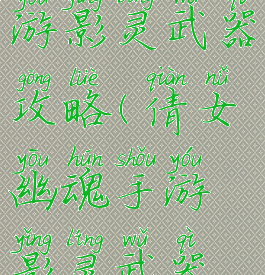 yóu yǐng líng wǔ qì
游影灵武器
gōng lüè qiàn nǚ
攻略(倩女
yōu hún shǒu yóu
幽魂手游
yǐng líng wǔ qì
影灵武器